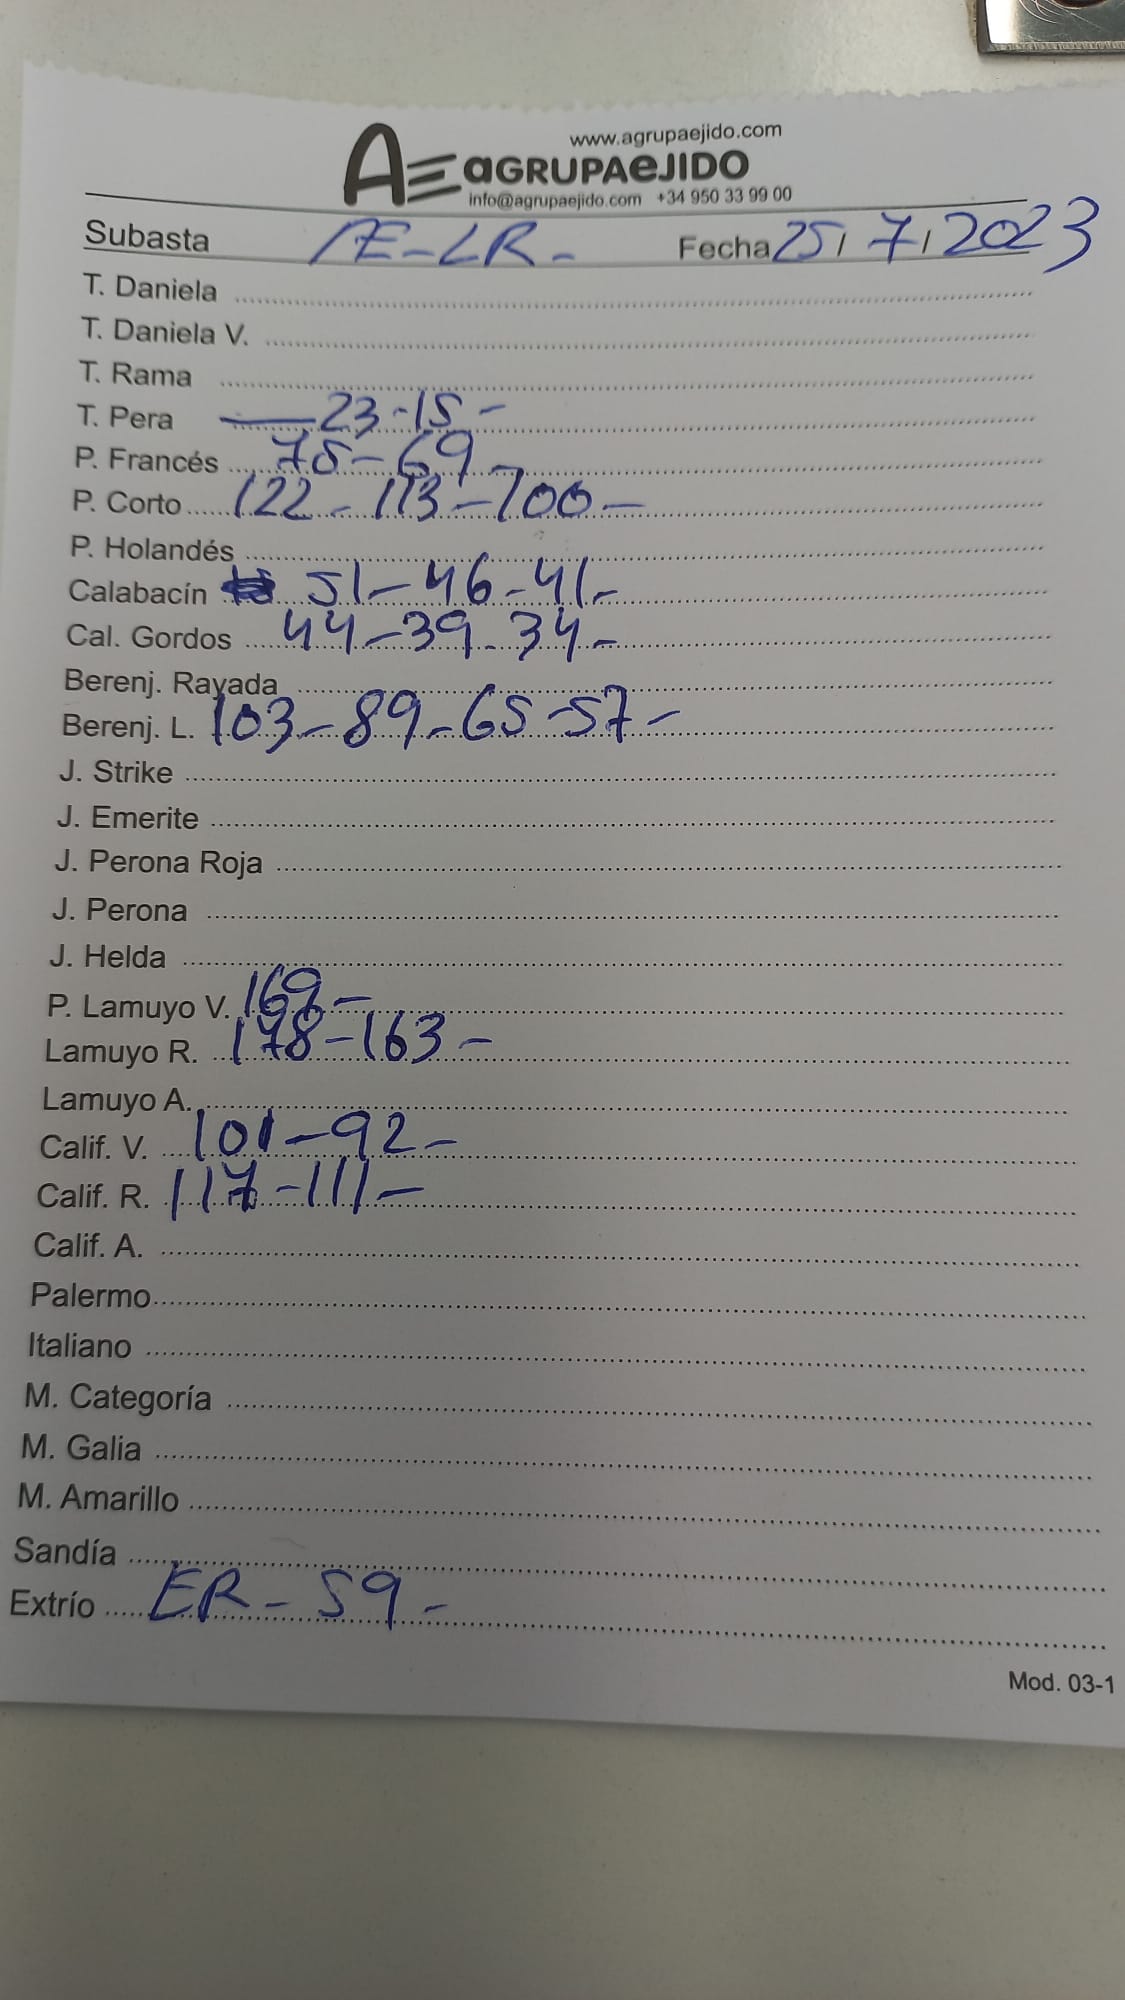 www.agrupaejido.com
AE aGRUPAeJIDO
info@agrupaejido.com +34 950 33 99 00
Subasta AE-LR- Fecha 25/7/2023
T. Daniela
T. Daniela V.
T. Rama
T. Pera — 23-15-
P. Francés 75-69-
P. Corto 122-113-100-
P. Holandés
Calabacín 51-46-41-
Cal. Gordos 44-39-34-
Berenj. Rayada
Berenj. L. 103-89-65-57-
J. Strike
J. Emerite
J. Perona Roja
J. Perona
J. Helda
P. Lamuyo V. 169-
Lamuyo R. 178-163-
Lamuyo A.
Calif. V. 101-92-
Calif. R. 117-111-
Calif. A.
Palermo
Italiano
M. Categoría
M. Galia
M. Amarillo
Sandía
Extrío ER-59-
Mod. 03-1